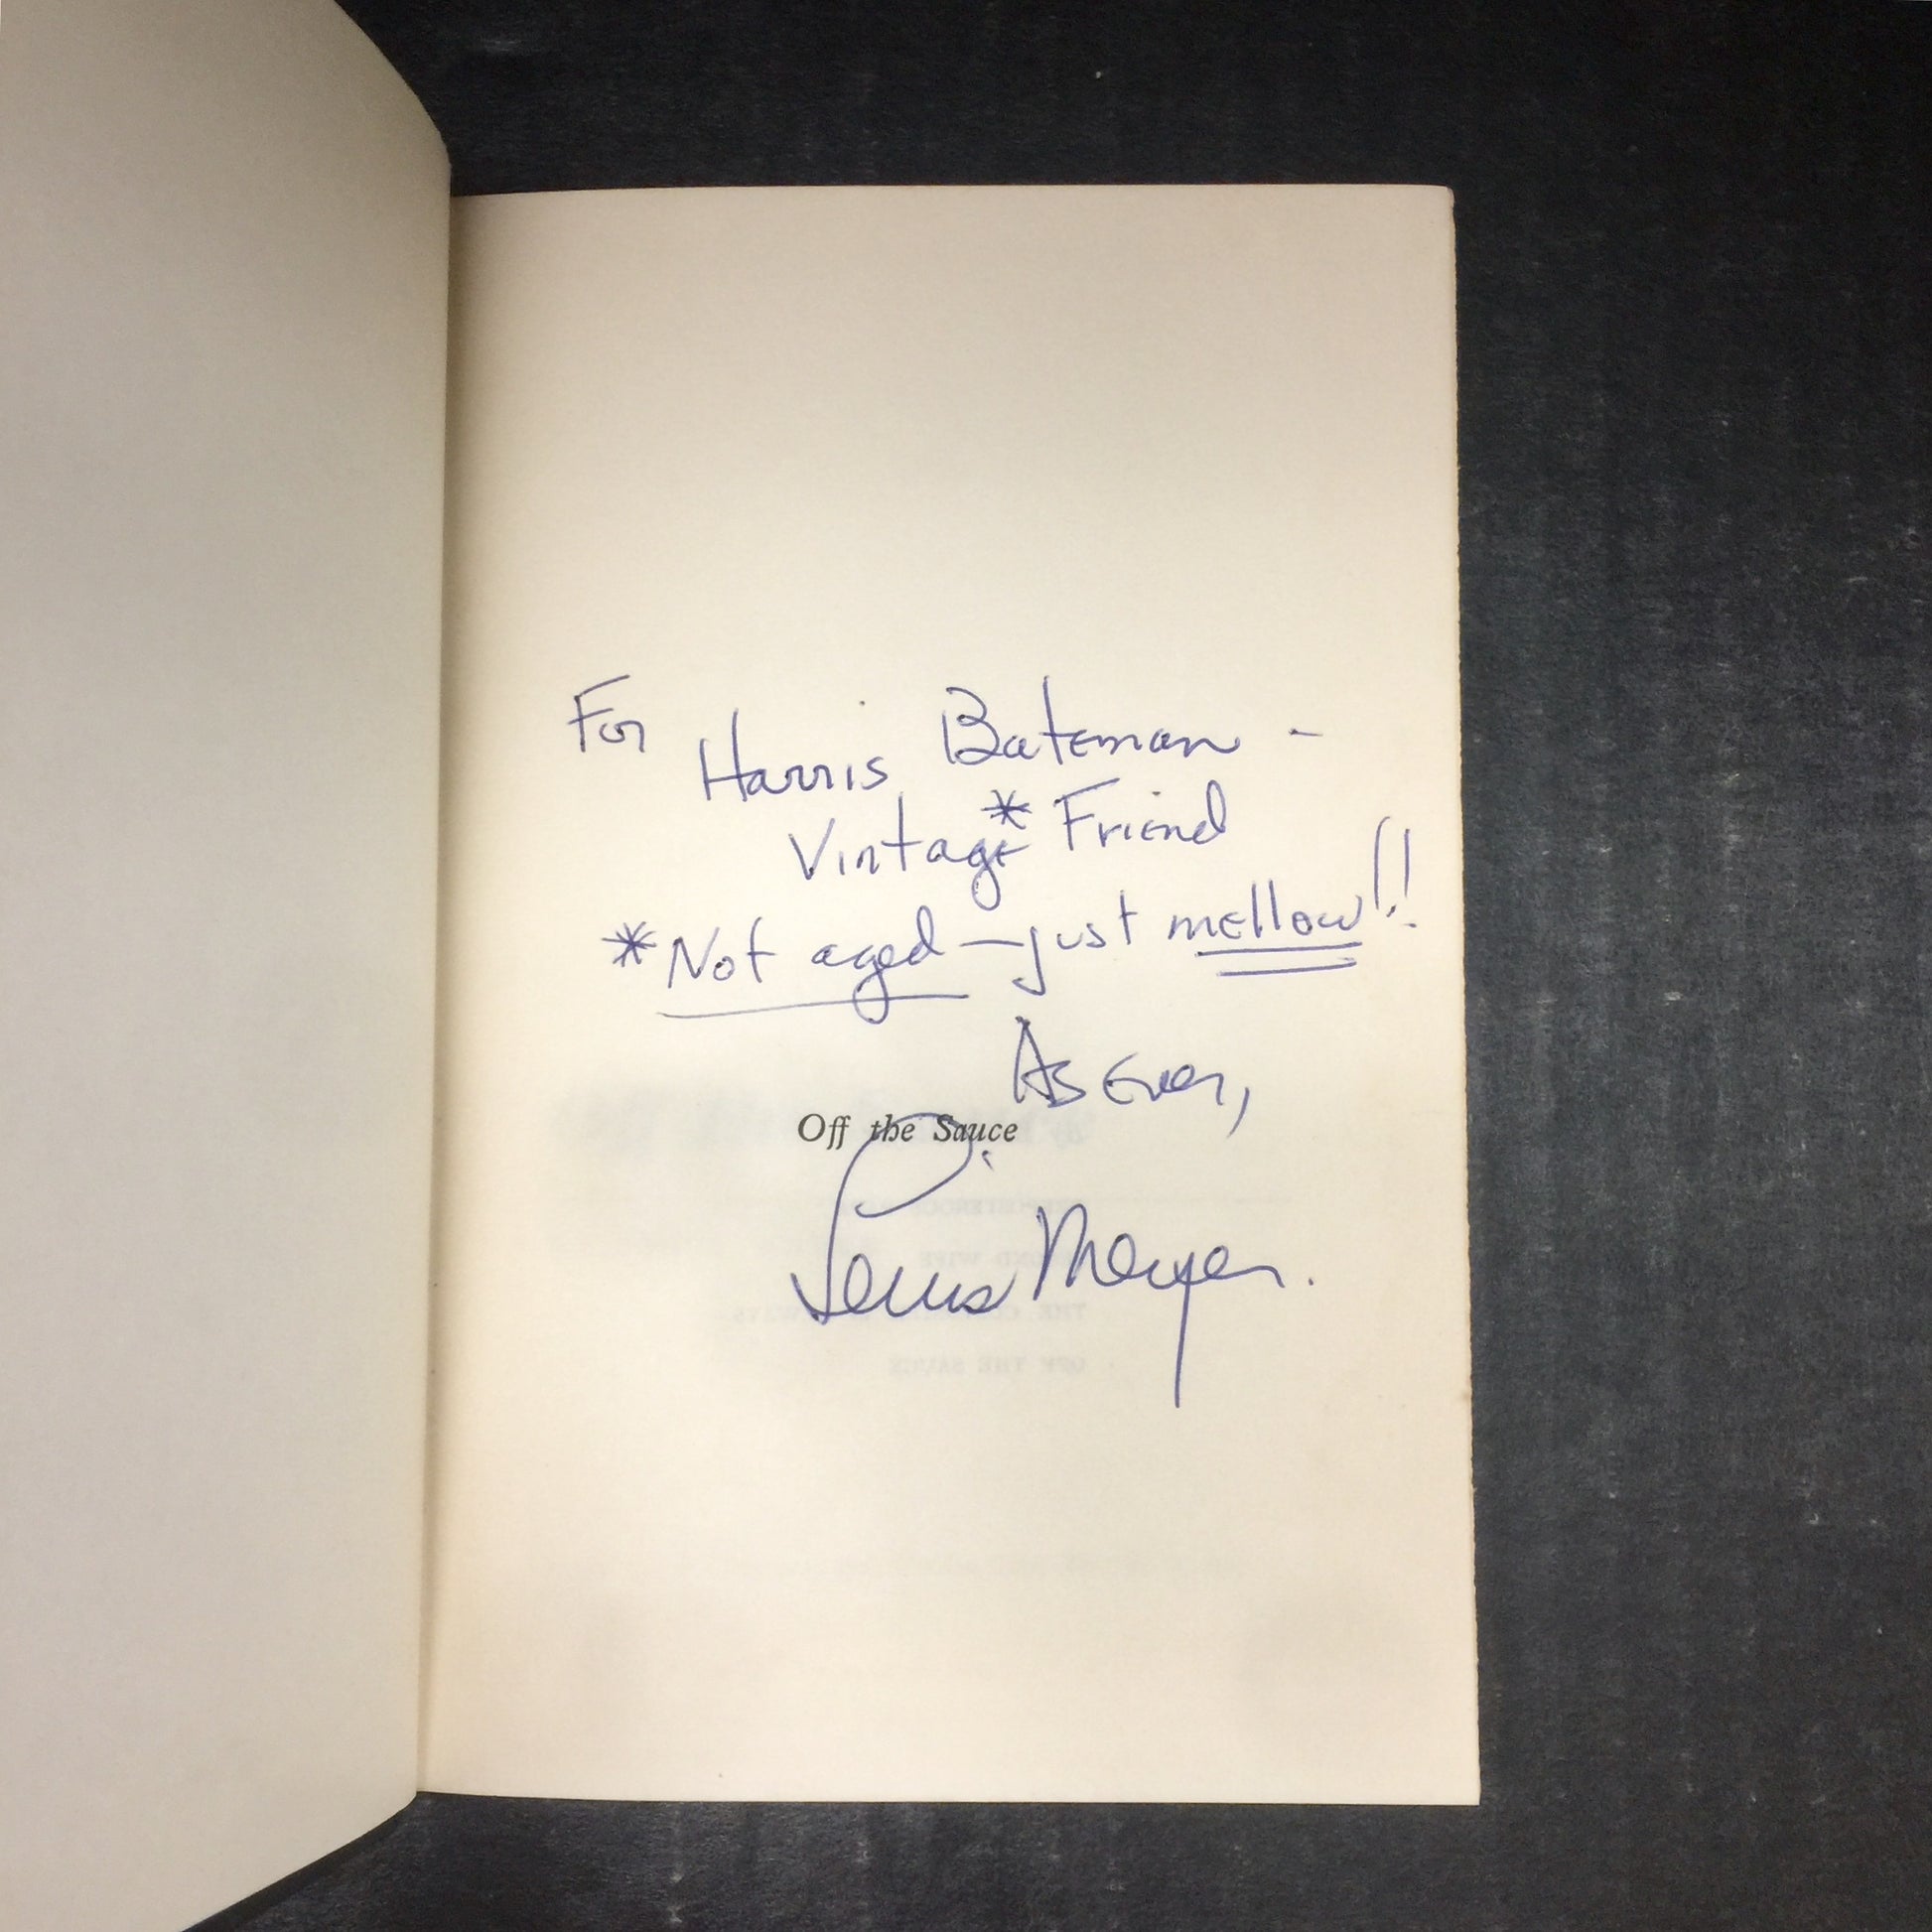 For Harris Bateman -
Vintage* Friend
*Not aged — just mellow!!
As Ever,
Off the Sauce
Lewis Meyer.
OFF THE SAUCE